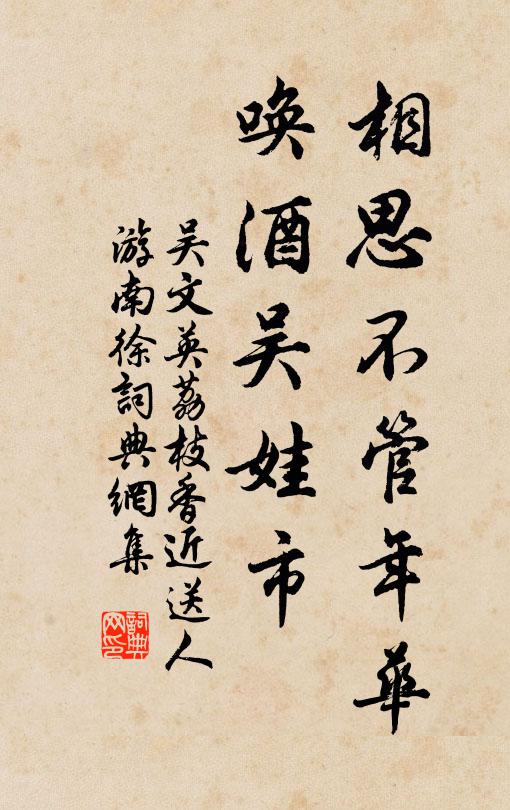 相思不管年華
喚酒吳娃市
吴文英荔枝香近送人
游南徐詞典網集
詞典
网印